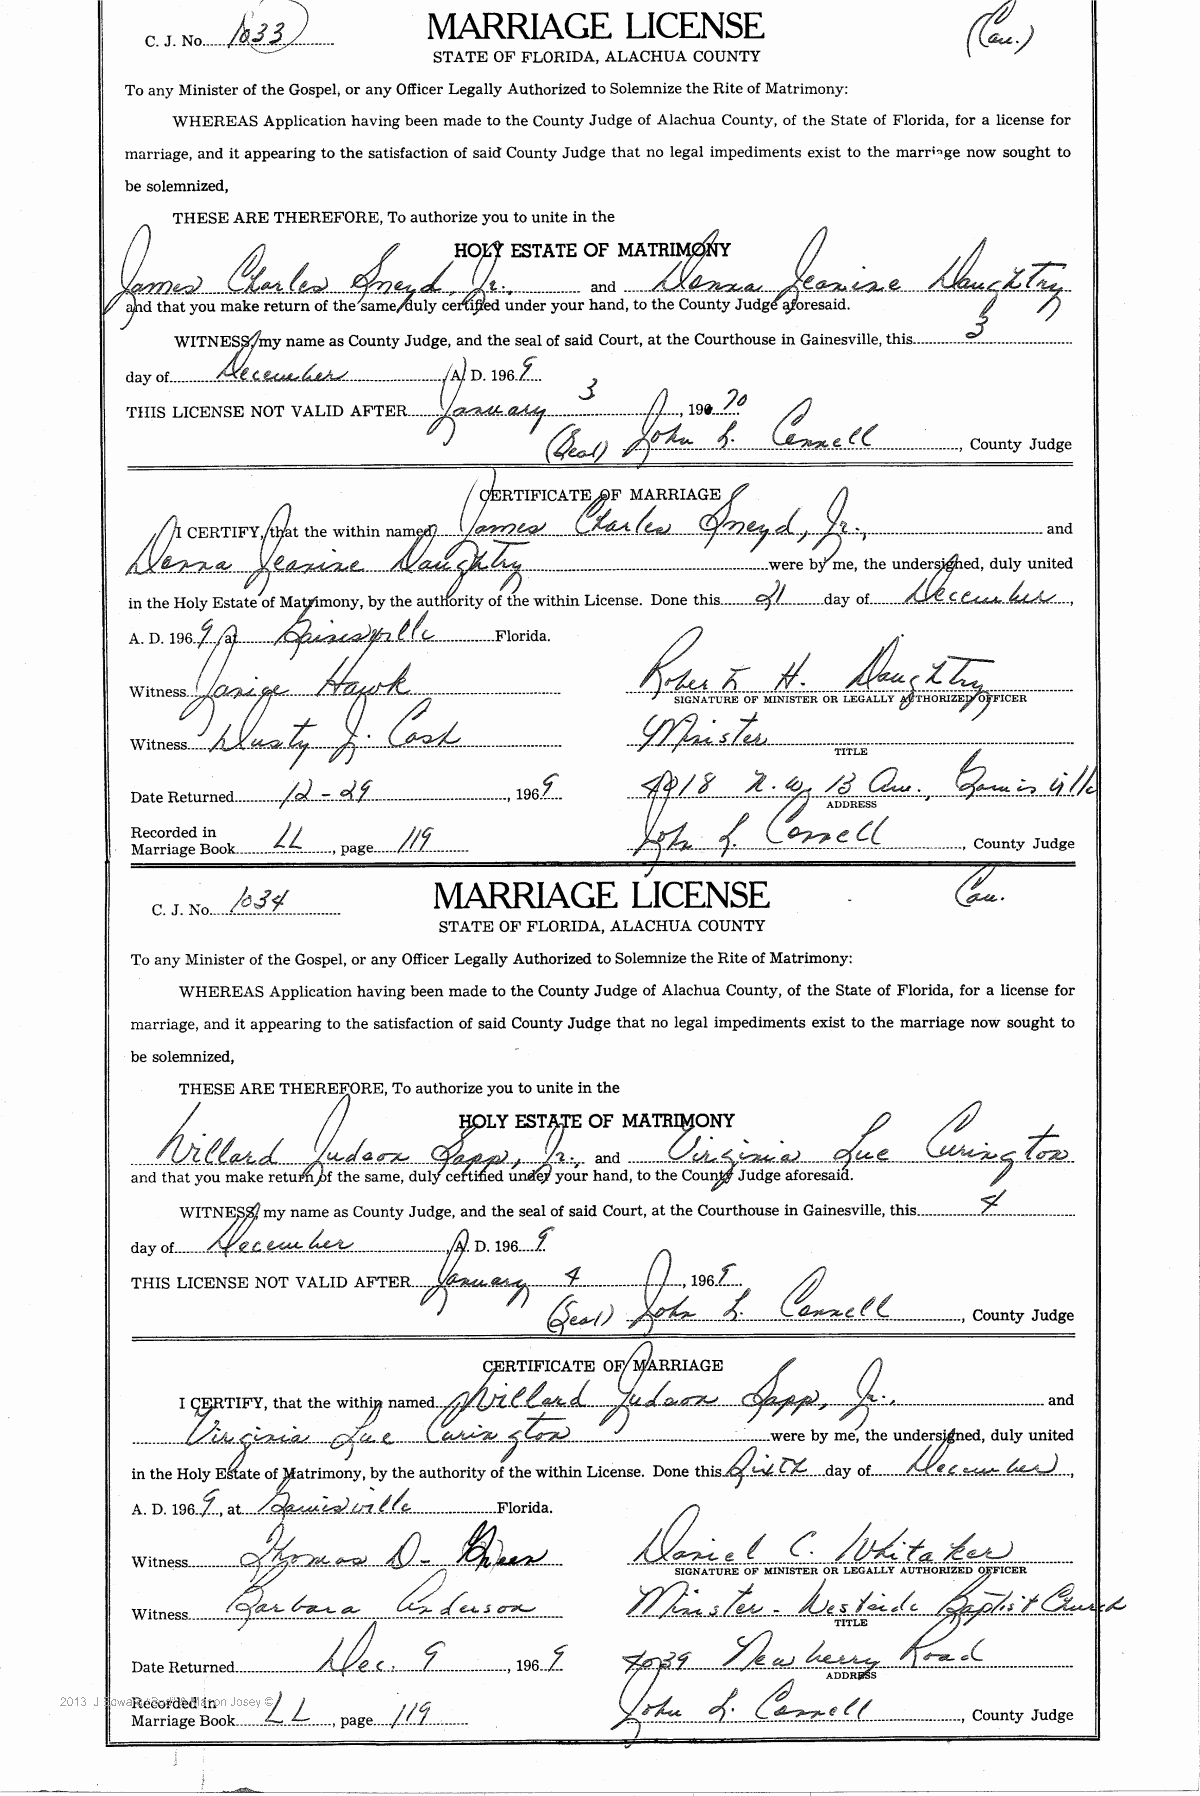 C. J. No. 1033
MARRIAGE LICENSE
(Cau.)
STATE OF FLORIDA, ALACHUA COUNTY
To any Minister of the Gospel, or any Officer Legally Authorized to Solemnize the Rite of Matrimony:
WHEREAS Application having been made to the County Judge of Alachua County, of the State of Florida, for a license for
marriage, and it appearing to the satisfaction of said County Judge that no legal impediments exist to the marriage now sought to
be solemnized,
THESE ARE THEREFORE, To authorize you to unite in the
HOLY ESTATE OF MATRIMONY
James Charles Sneyd, Jr., and Donna Jeanine Daughtry
and that you make return of the same, duly certified under your hand, to the County Judge aforesaid.
WITNESS, my name as County Judge, and the seal of said Court, at the Courthouse in Gainesville, this 3
day of December A. D. 196 9
THIS LICENSE NOT VALID AFTER January 3, 19 70
(Seal) John L. Connell, County Judge
CERTIFICATE OF MARRIAGE
I CERTIFY, that the within named James Charles Sneyd, Jr., and
Donna Jeanine Daughtry were by me, the undersigned, duly united
in the Holy Estate of Matrimony, by the authority of the within License. Done this 21 day of December,
A. D. 196 9, at Gainesville Florida.
Witness Janice Hawk
Robert H. Daughtry
SIGNATURE OF MINISTER OR LEGALLY AUTHORIZED OFFICER
Witness Dusty J. Cash
Minister
TITLE
Date Returned 12-29, 196 9
4918 N.W. 13 Ave., Gainesville
ADDRESS
Recorded in
Marriage Book LL, page 119
John L. Connell, County Judge
C. J. No. 1034
MARRIAGE LICENSE
Cau.
STATE OF FLORIDA, ALACHUA COUNTY
To any Minister of the Gospel, or any Officer Legally Authorized to Solemnize the Rite of Matrimony:
WHEREAS Application having been made to the County Judge of Alachua County, of the State of Florida, for a license for
marriage, and it appearing to the satisfaction of said County Judge that no legal impediments exist to the marriage now sought to
be solemnized,
THESE ARE THEREFORE, To authorize you to unite in the
HOLY ESTATE OF MATRIMONY
Willard Judson Sapp, Jr., and Virginia Sue Curington
and that you make return of the same, duly certified under your hand, to the County Judge aforesaid.
WITNESS, my name as County Judge, and the seal of said Court, at the Courthouse in Gainesville, this 4
day of December, A. D. 196 9
THIS LICENSE NOT VALID AFTER January 4, 196 9
(Seal) John L. Connell, County Judge
CERTIFICATE OF MARRIAGE
I CERTIFY, that the within named Willard Judson Sapp, Jr. and
Virginia Sue Curington were by me, the undersigned, duly united
in the Holy Estate of Matrimony, by the authority of the within License. Done this Sixth day of December,
A. D. 196 9, at Gainesville Florida.
Witness Thomas D. Green
Daniel C. Whitaker
SIGNATURE OF MINISTER OR LEGALLY AUTHORIZED OFFICER
Witness Barbara Anderson
Minister - Westside Baptist Church
TITLE
Date Returned Dec. 9, 196 9
4039 Newberry Road
ADDRESS
Recorded in
Marriage Book LL, page 119
John L. Connell, County Judge